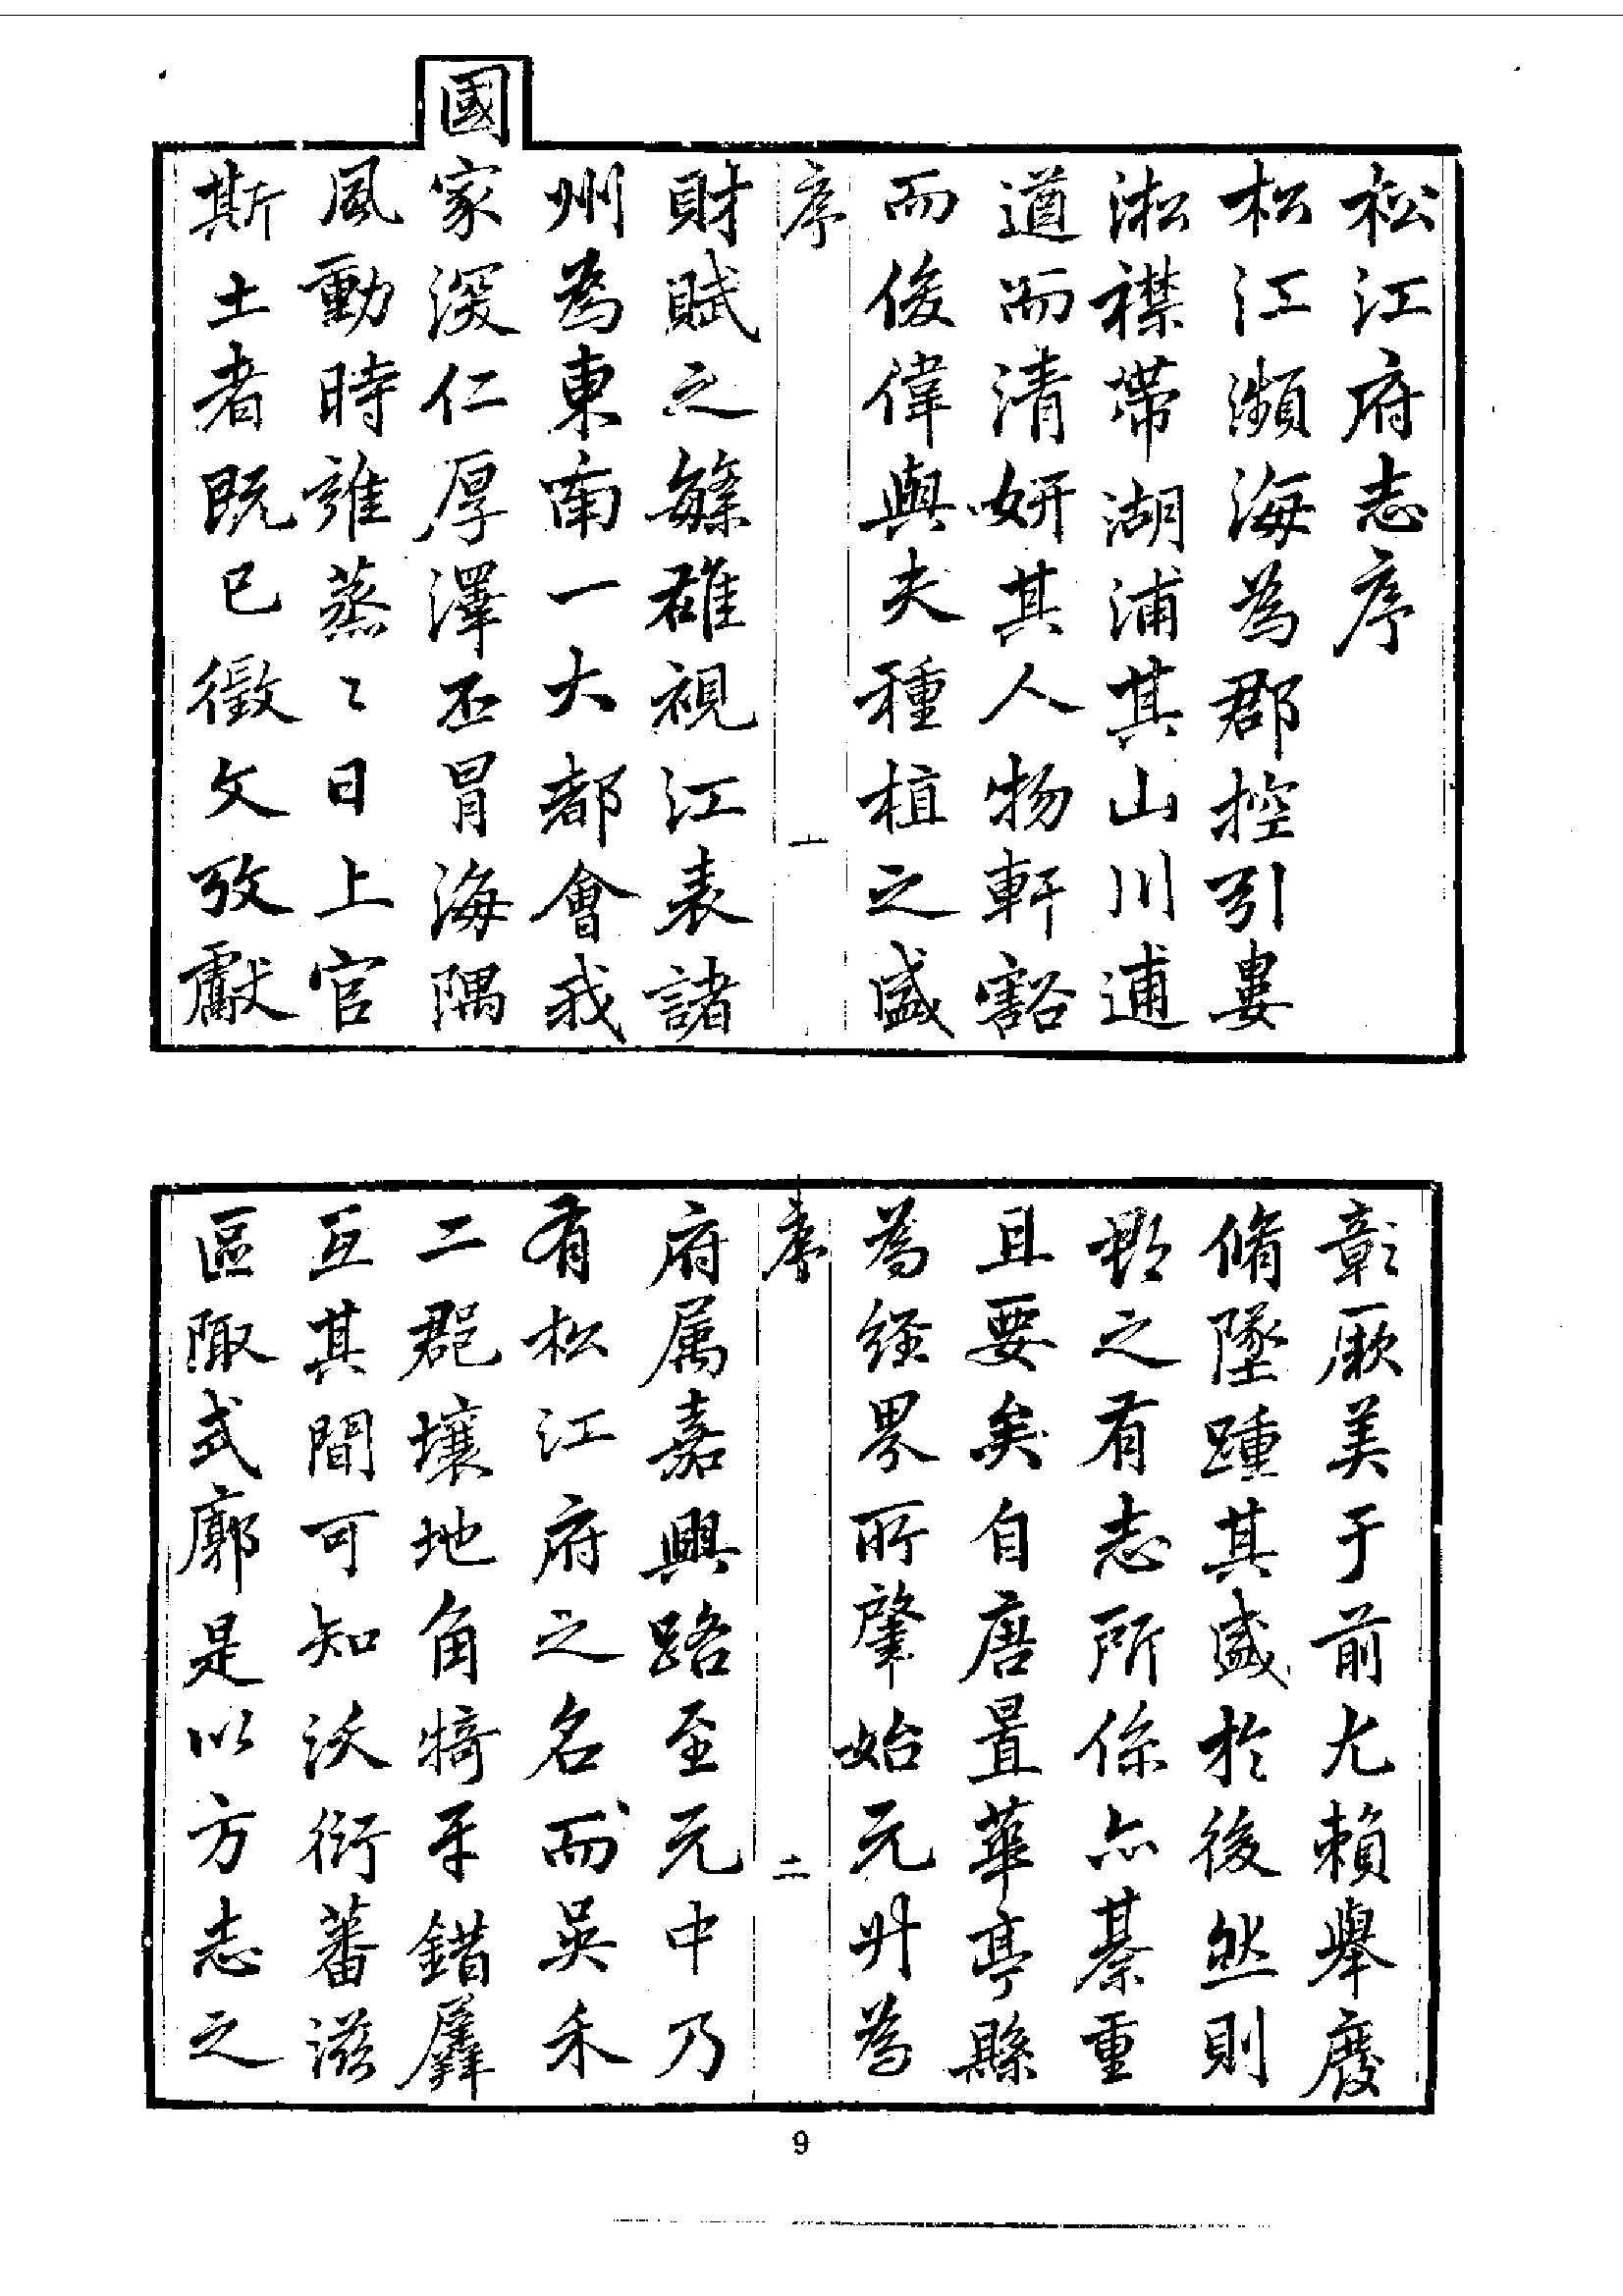 松江府志序
松江瀕海為郡控引婁
淞襟帶湖浦其山川逋
遒而清妍其人物軒豁
而俊偉與夫種植之盛
序
一
財賦之繇雄視江表諸
州為東南一大都會我
國家深仁厚澤丕冒海隅
風動時雍蒸〻日上官
斯土者既已徵文攷獻
彰厥美于前尤賴舉廢
脩墜踵其盛於後然則
郡之有志所係亦綦重
且要矣自唐置華亭縣
為經界所肇始元升為
序
二
府屬嘉興路至元中乃
有松江府之名而吳禾
二郡壤地角犄牙錯羼
互其間可知沃衍蕃滋
區陬式廓是以方志之
9